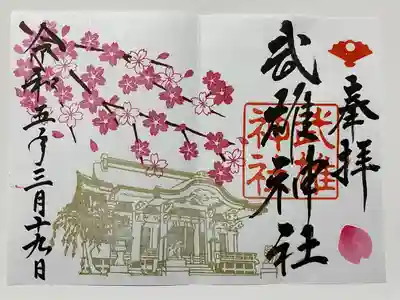 奉拝
武雄神社
武雄神社
令和五年三月十九日